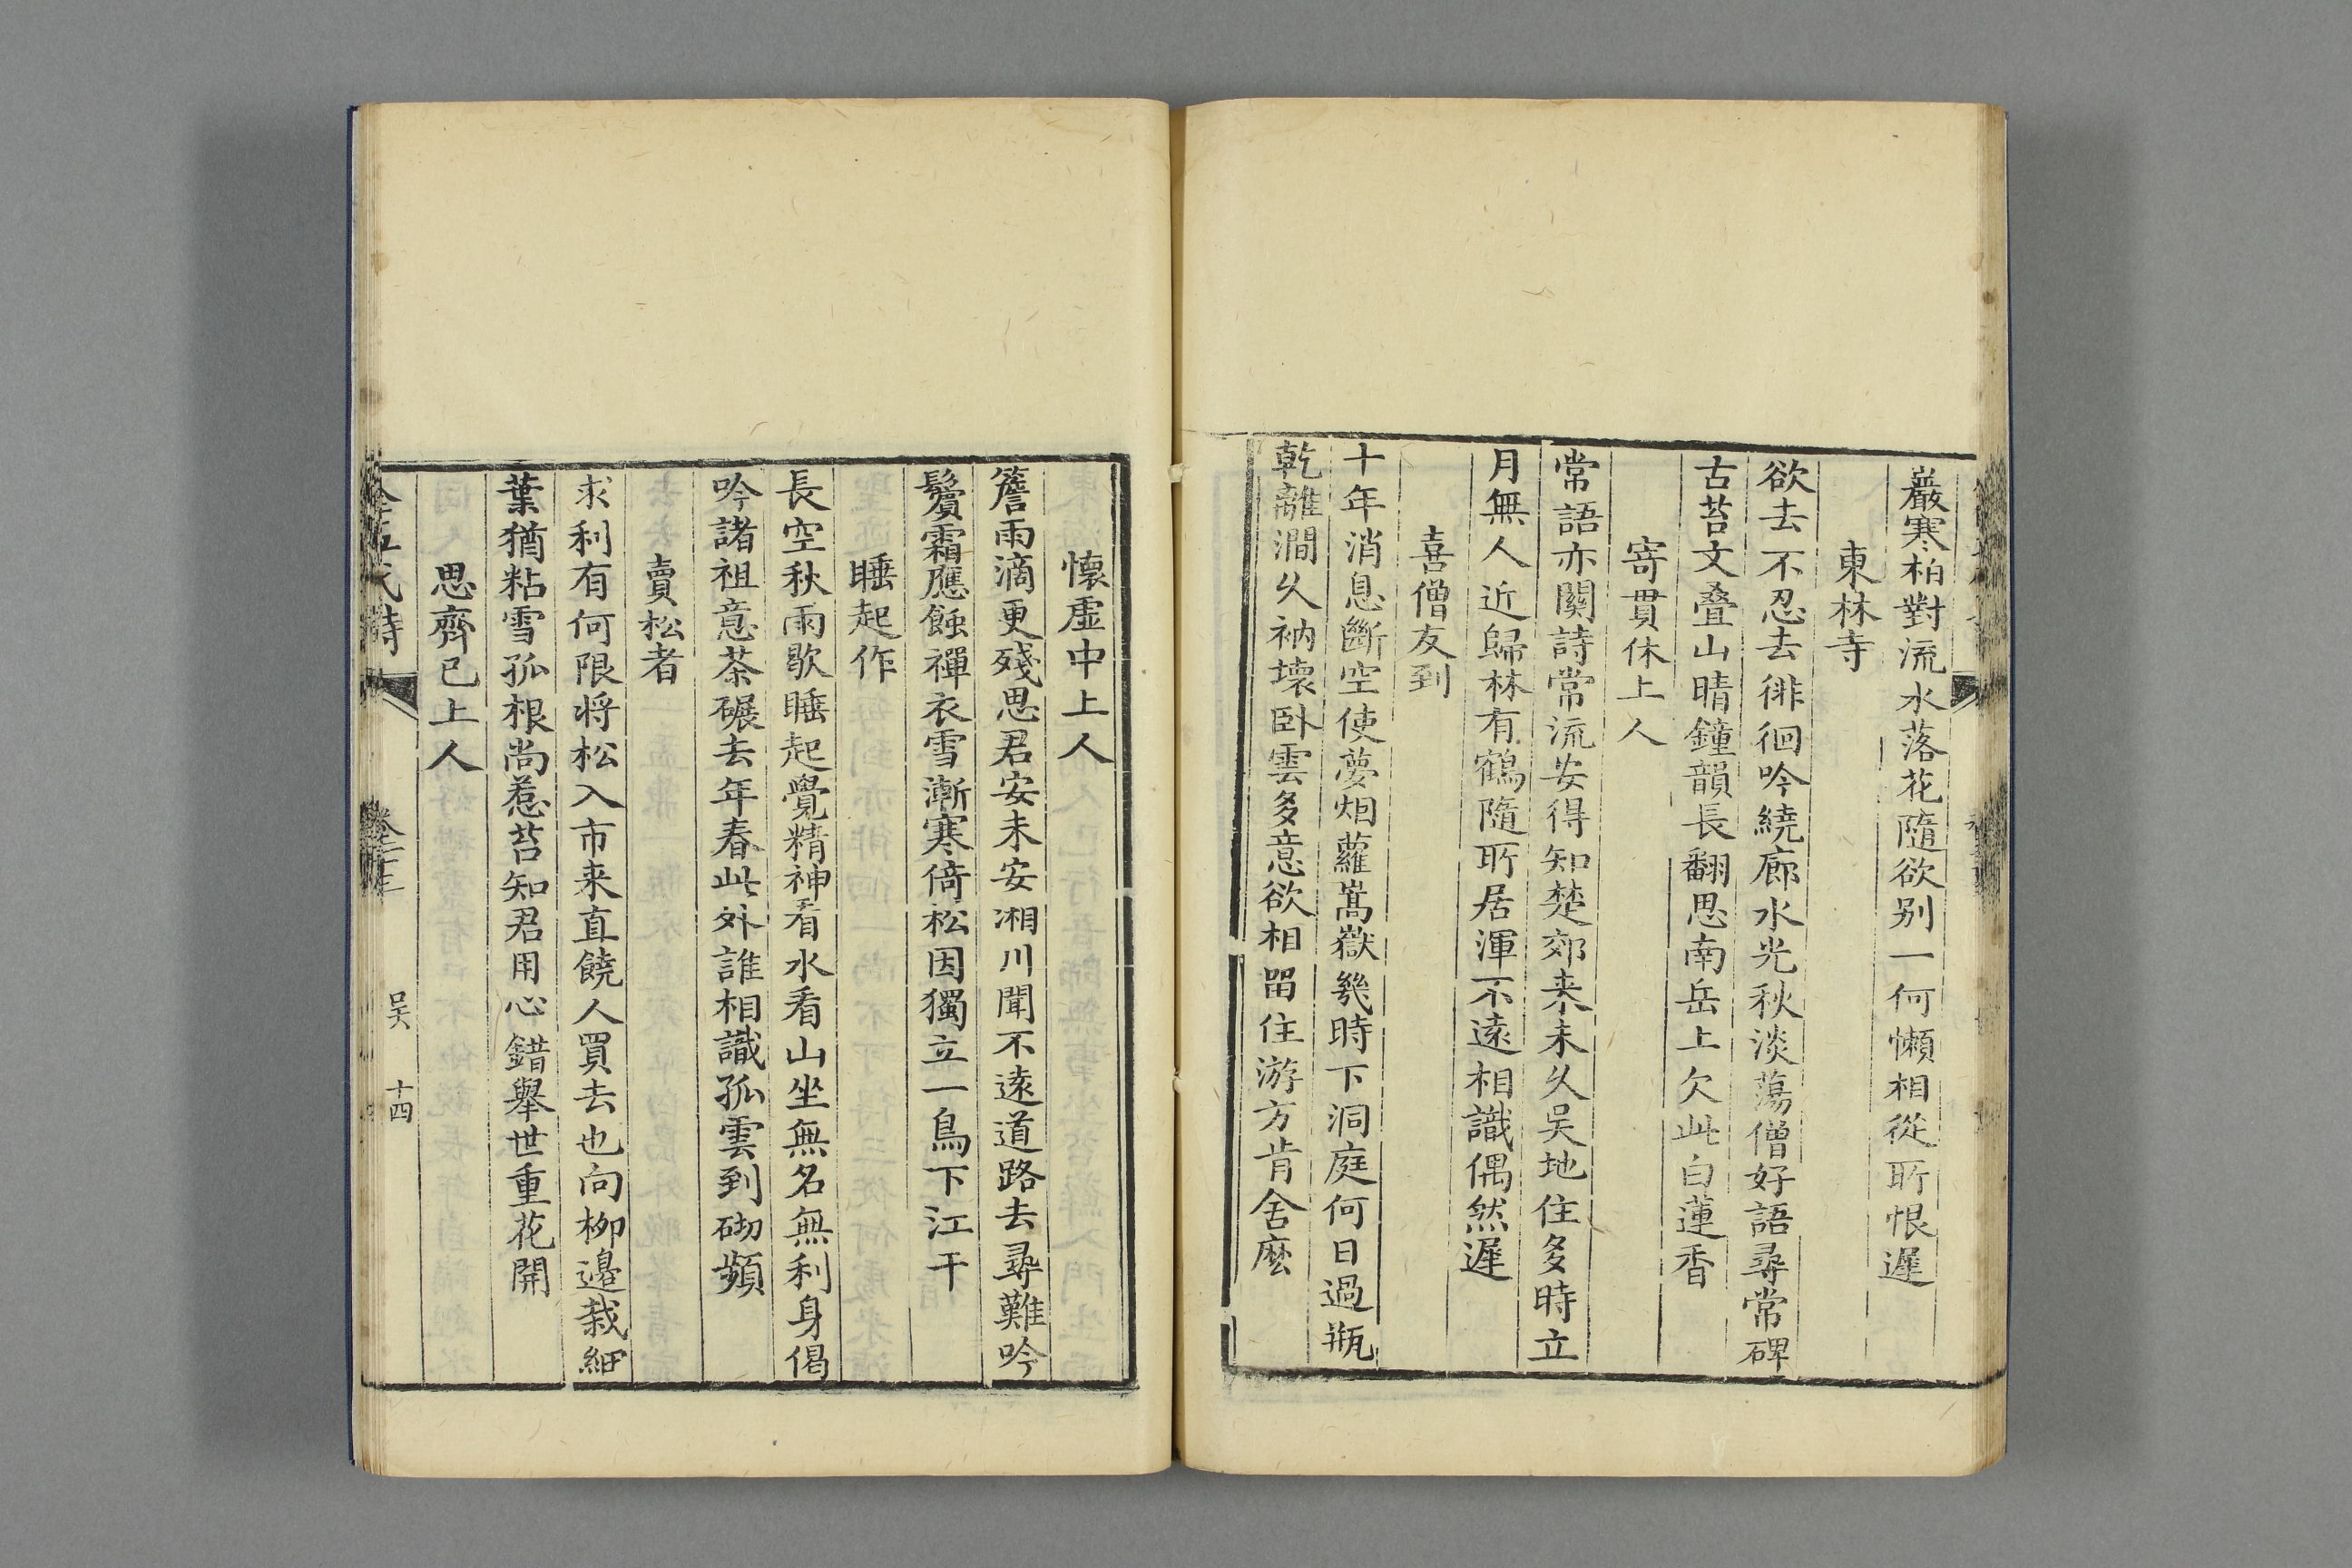 巖寒柏對流水落花隨欲别一何懶相從所恨遲
東林寺
欲去不忍去徘徊吟繞廊水光秋淡蕩僧好語尋常碑
古苔文疊山晴鐘韻長翻思南岳上欠此白蓮香
寄貫休上人
常語亦關詩常流安得知楚郊来未久吳地住多時立
月無人近歸林有鶴隨所居渾不遠相識偶然遲
喜僧友到
十年消息斷空使夢烟蘿嵩嶽幾時下洞庭何日過瓶
乾離澗久衲壞卧雲多意欲相留住游方肯舍麽
懷虛中上人
簷雨滴更殘思君安未安湘川聞不遠道路去尋難吟
鬢霜應蝕禪衣雪漸寒倚松因獨立一鳥下江干
睡起作
長空秋雨歇睡起覺精神看水看山坐無名無利身偈
吟諸祖意茶碾去年春此外誰相識孤雲到砌頻
賣松者
求利有何限将松入市来直饒人買去也向柳邊栽細
葉猶粘雪孤根尚惹苔知君用心錯舉世重花開
思齊已上人
卷三
吴
十四